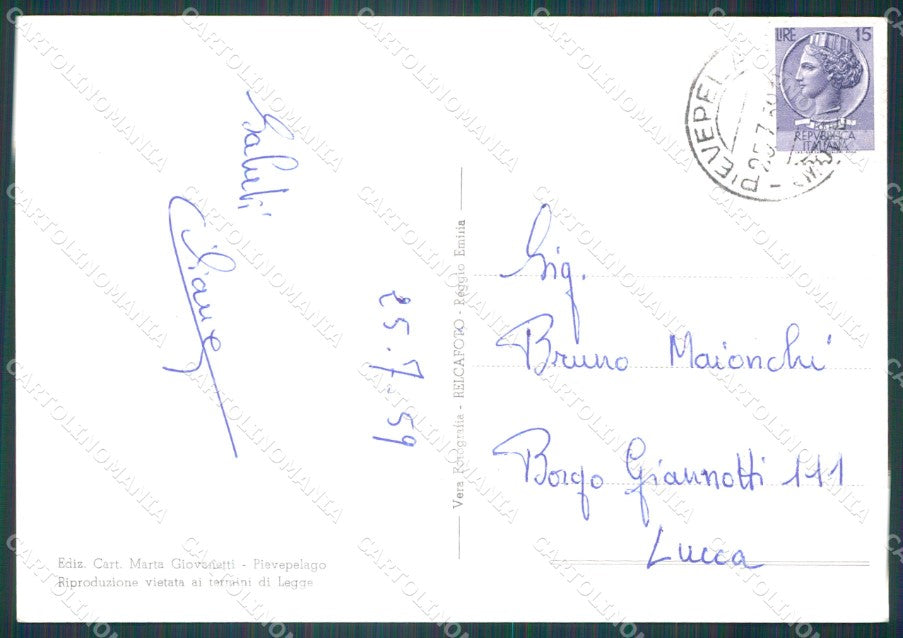 LIRE 15
REPVBBLICA
ITALIANA
25.7.59
Saluti
25.7.59
Vera Fotografia - RELCAFOTO - Reggio Emilia
Sig.
Bruno Maionchi
Borgo Giannotti 111
Lucca
Ediz. Cart. Marta Giovanetti - Pievepelago
Riproduzione vietata ai termini di Legge
CARTOLINOMANIA